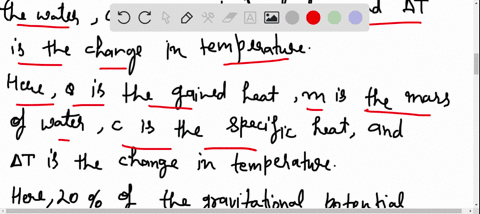 the water, c
and ΔT
is the change in temperature.
Here, Q is the gained heat, m is the mass
of water, c is the specific heat, and
ΔT is the change in temperature.
Here, 20 % of the gravitational potential